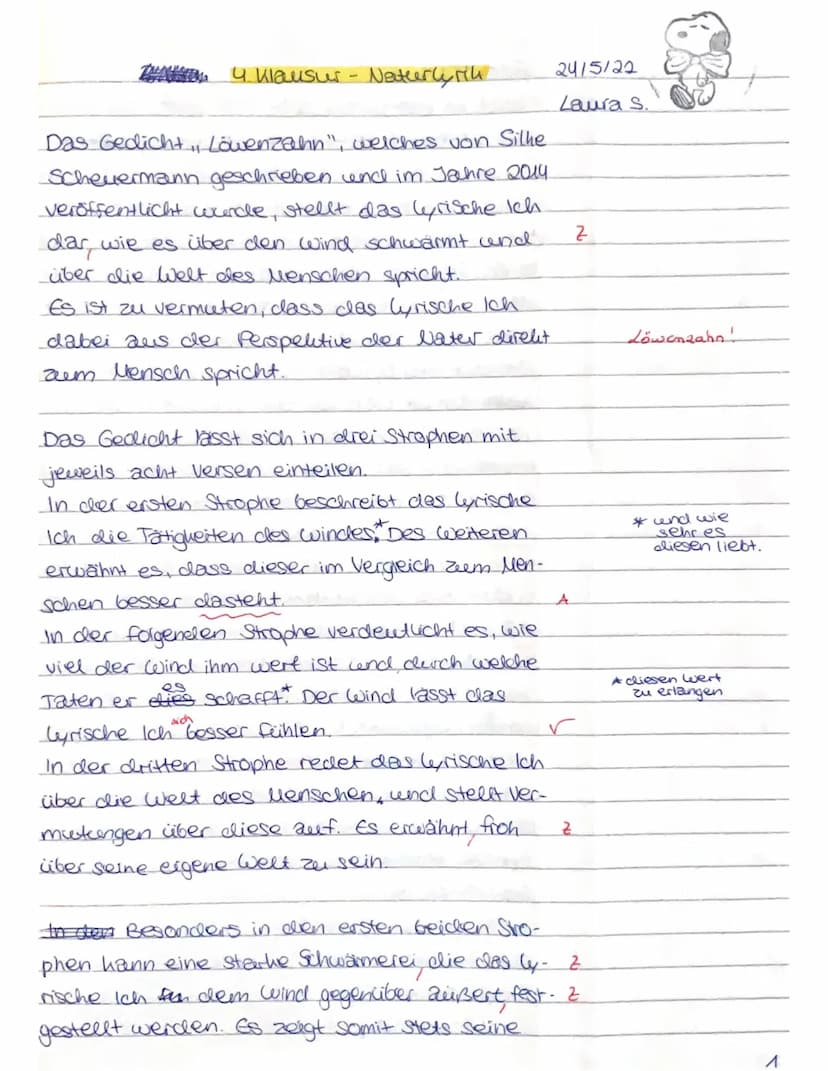 4 Klausur - Naturlyrik 24/5/22
Laura S.
Das Gedicht „Löwenzahn", welches von Silke
Scheuermann geschrieben und im Jahre 2014
veröffentlicht wurde, stellt das lyrische Ich
dar, wie es über den Wind schwärmt und Z
über die Welt des Menschen spricht.
Es ist zu vermuten, dass das lyrische Ich
dabei aus der Perspektive der Natur direkt Löwenzahn!
zum Mensch spricht.
Das Gedicht lässt sich in drei Strophen mit
jeweils acht Versen einteilen.
In der ersten Strophe beschreibt das lyrische
Ich die Tätigkeiten des Windes.* Des Weiteren * und wie sehr es diesen liebt.
erwähnt es, dass dieser im Vergleich zum Men-
schen besser dasteht. A
In der folgenden Strophe verdeutlicht es, wie
viel der Wind ihm wert ist und, durch welche
Taten er dies es schafft.* Der Wind lässt das * diesen Wert zu erlangen
lyrische Ich sich besser fühlen. √
In der dritten Strophe redet das lyrische Ich
über die Welt des Menschen, und stellt Ver-
mutungen über diese auf. Es erwähnt, froh Z
über seine eigene Welt zu sein.
In den Besonders in den ersten beiden Stro-
phen kann eine starke Schwärmerei, die das ly- Z
rische Ich dem Wind gegenüber äußert, fest- Z
gestellt werden. Es zeigt somit stets seine
1